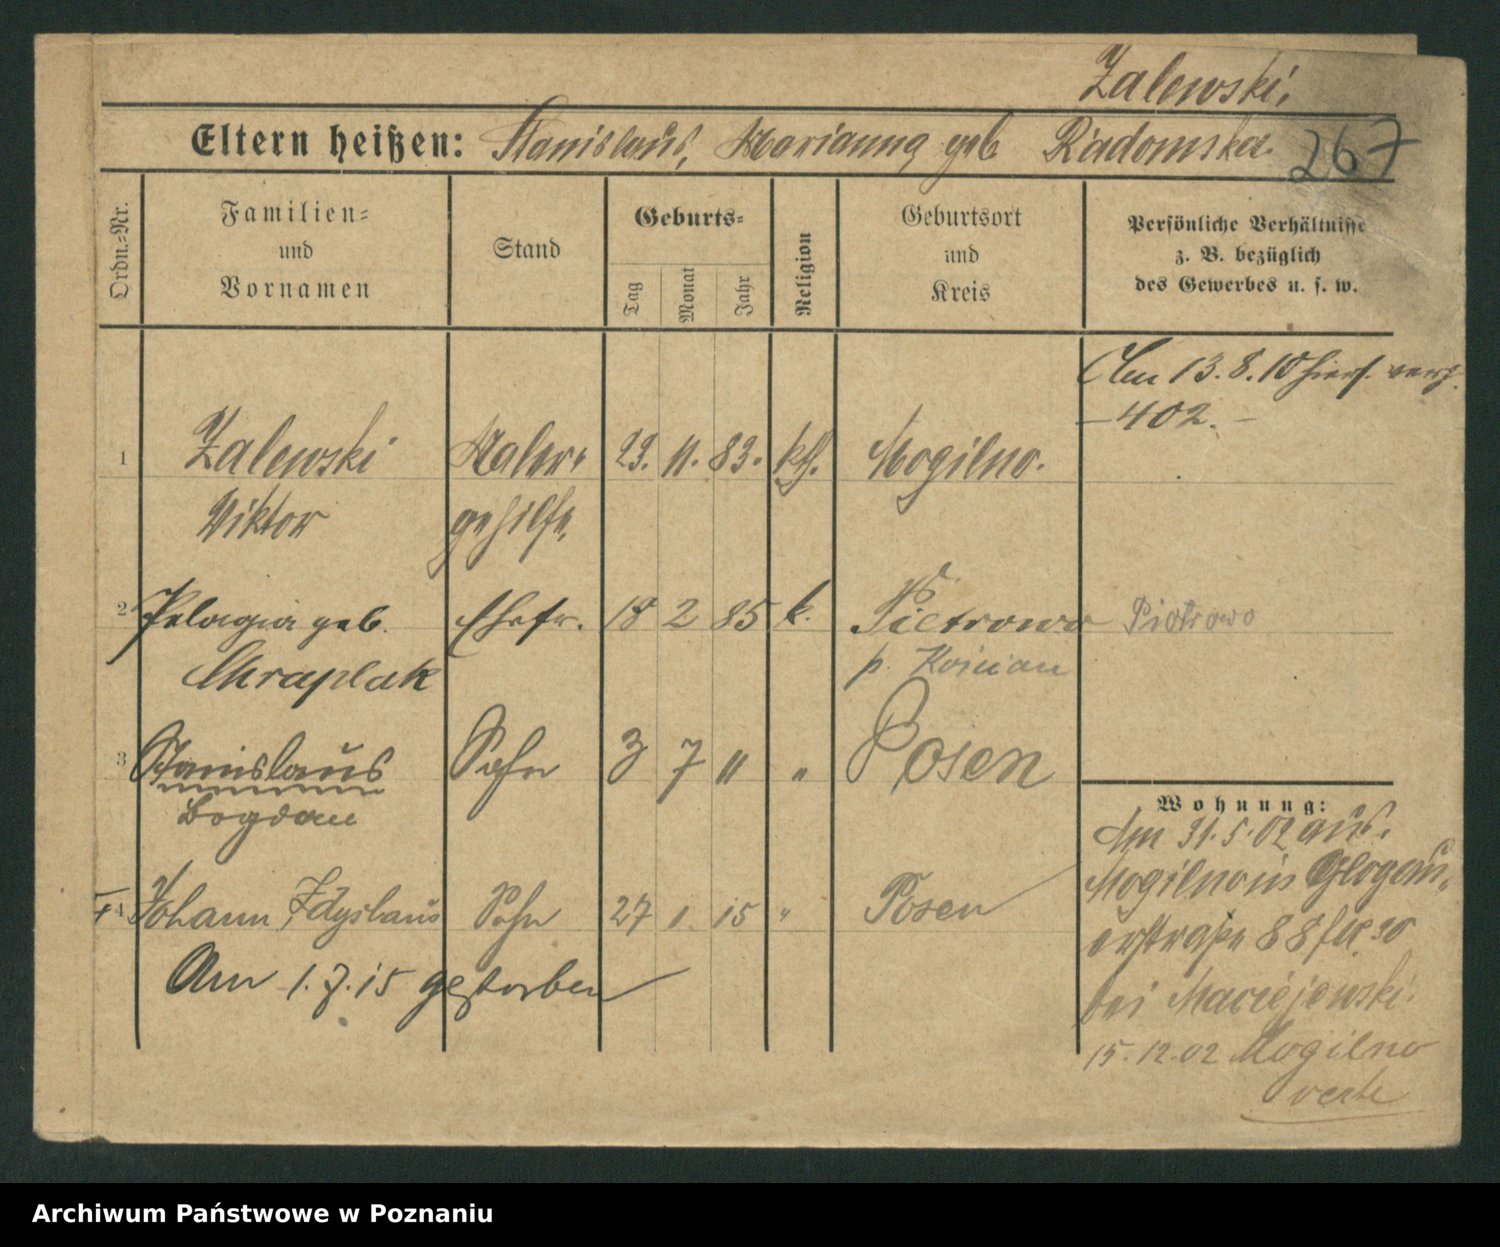 Zalewski.
Eltern heißen: Stanislaus, Marianna geb Radomska.
267
Ordn.-Nr.
Familien-
und
Vornamen
Stand
Geburts-
Tag
Monat
Jahr
Religion
Geburtsort
und
Kreis
Persönliche Verhältnisse
z. B. bezüglich
des Gewerbes u. s. w.
Am 13.8.10 hiers. verz.
- 402. -
1 Zalewski Maler- 23. 11. 83. kth. Mogilno.
Viktor gehilfe,
2 Pelagia geb. Ehefr. 18 2 85 k. Pietrowo Piotrowo
Chraplak p. Koscian
3 Stanislaus Sohn 3 7 11 " Posen
Bogdan
Wohnung:
Am 31.5.02 aus.
Mogilno in Glogau-
erstraße 88
4 Johann Zdyslaus Sohn 27 1. 15 " Posen
Am 1.7.15 gestorben
bei Maciejewski.
15.12.02 Mogilno
verte
Archiwum Państwowe w Poznaniu